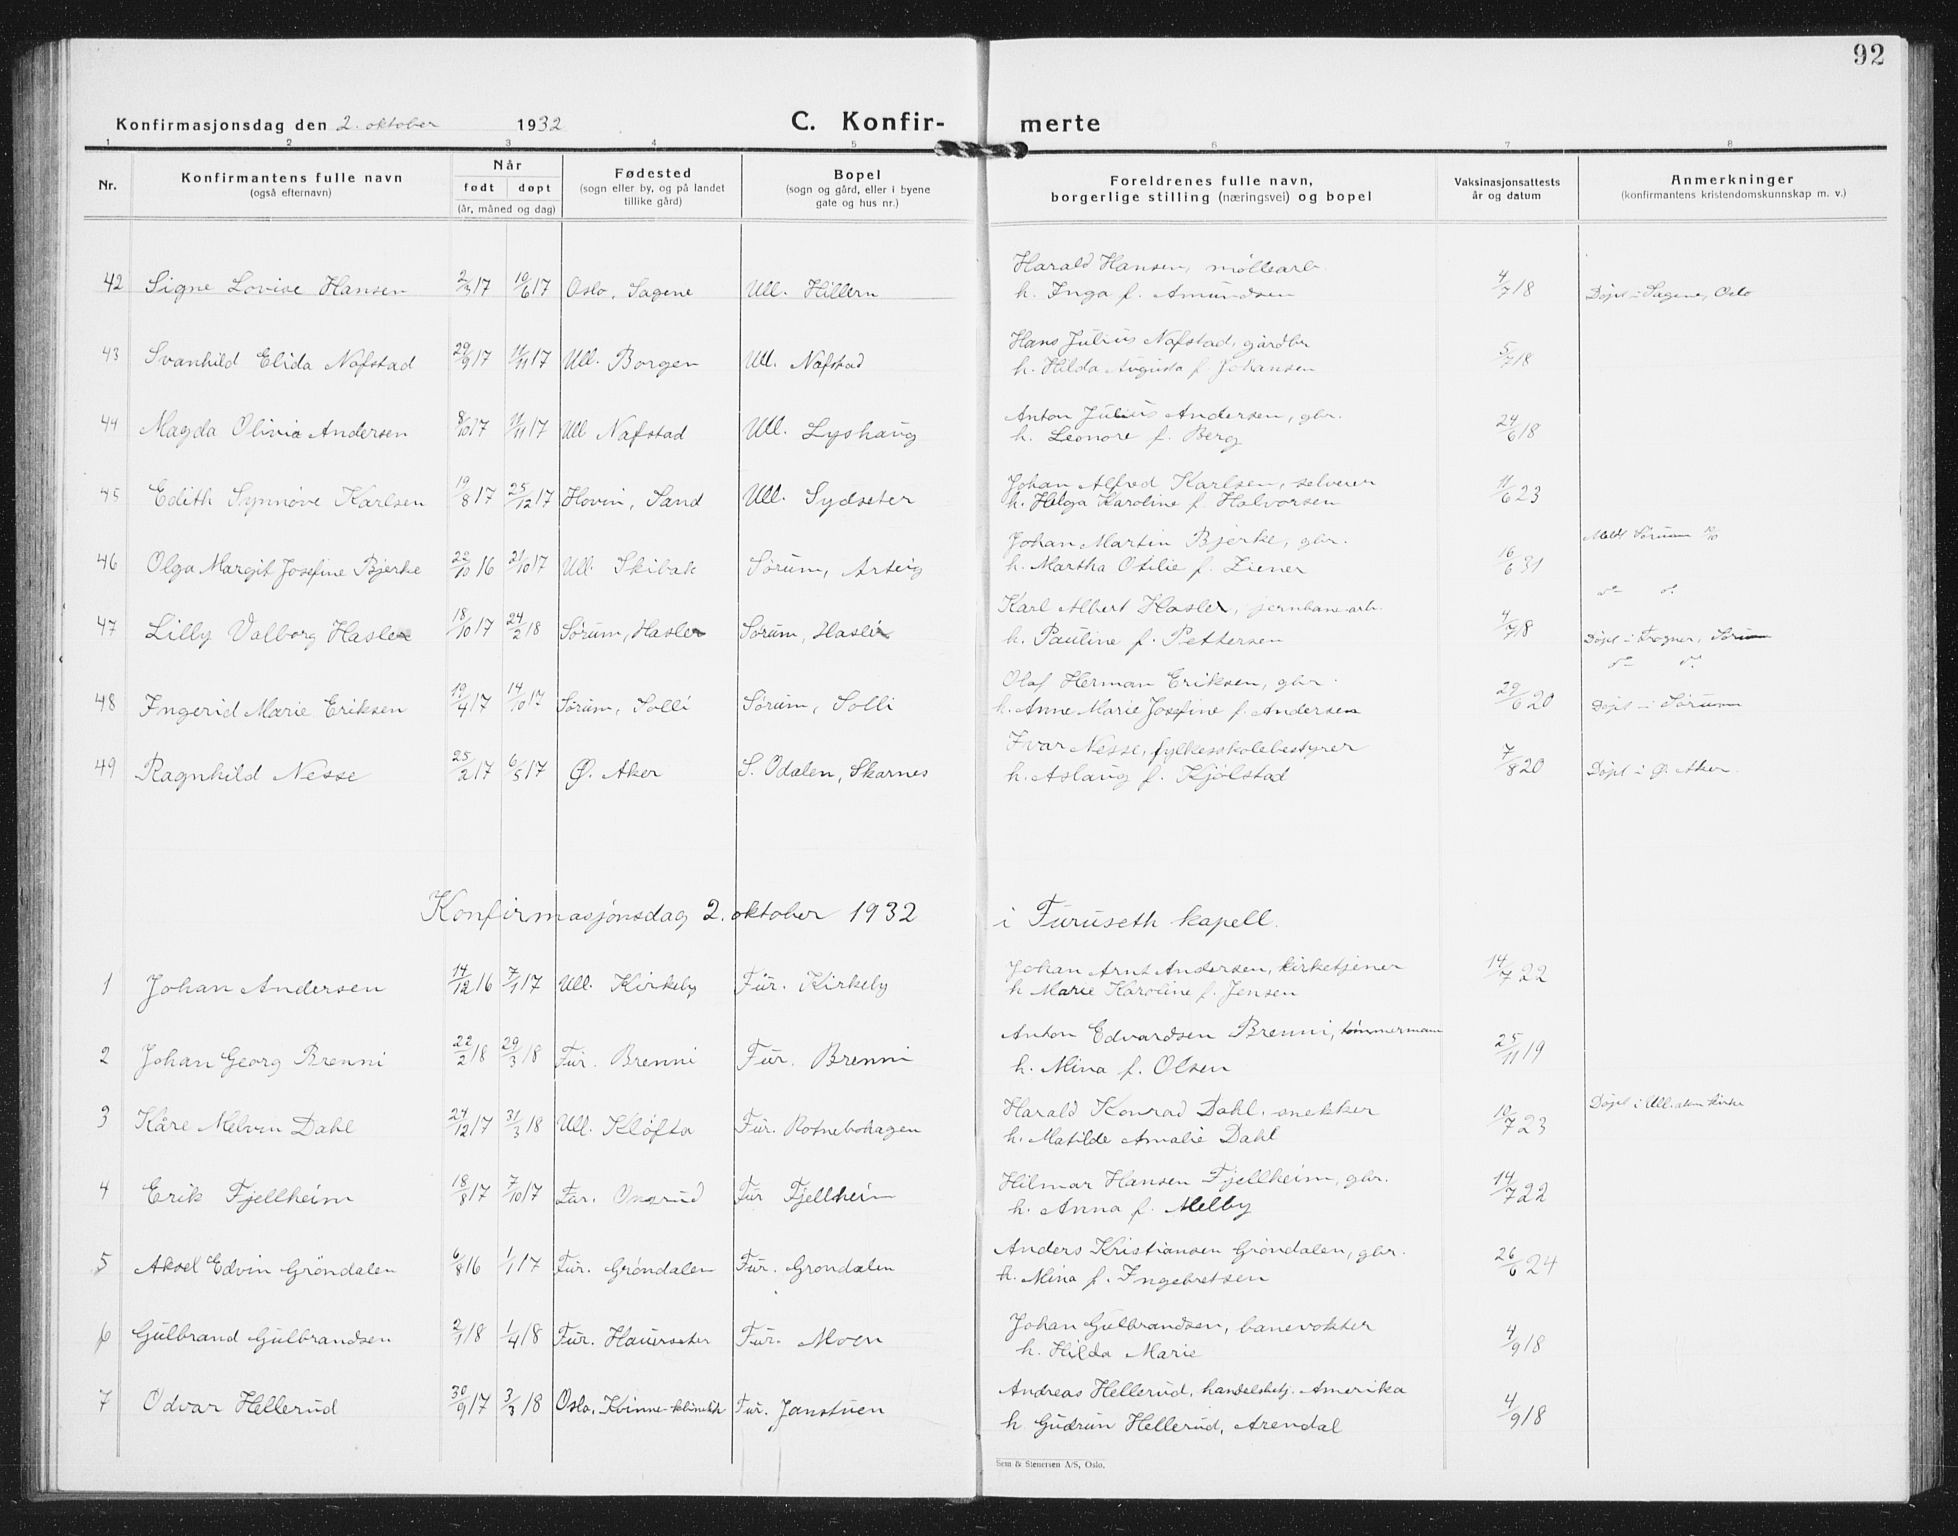 92
Konfirmasjonsdag den 2. oktober 1932 C. Konfir- merte
1 2 3 4 5 6 7 8
Nr. Konfirmantens fulle navn (også efternavn) Når født døpt (år, måned og dag) Fødested (sogn eller by, og på landet tillike gård) Bopel (sogn og gård, eller i byene gate og hus nr.) Foreldrenes fulle navn, borgerlige stilling (næringsvei) og bopel Vaksinasjonsattests år og datum Anmerkninger (konfirmantens kristendomskunnskap m. v.)
Harald Hansen, møllearb.
42 Signe Lovise Hansen 2/3 17 10/6 17 Oslo, Sagene Ull. Hillern h. Inga f. Amundsen 4/7 18 Døpt i Sagene, Oslo
Hans Julius Nafstad, gårdbr
43 Svanhild Elida Nafstad 29/9 17 11/11 17 Ull. Borgen Ull. Nafstad h. Hilda Augusta f. Johansen 5/7 18
Anton Julius Andersen, gbr.
44 Magda Olivia Andersen 8/10 17 11/11 17 Ull Nafstad Ull. Lyshaug h. Leonore f. Berg 24/6 18
Johan Alfred Karlsen, selveier
45 Edith Synnøve Karlsen 19/8 17 25/12 17 Hovin, Sand Ull. Sydseter h. Helga Karoline f. Halvorsen 11/6 23
Johan Martin Bjerke, gbr. Meldt Sørum
46 Olga Margit Josefine Bjerke 22/10 16 21/10 17 Ull. Skibak Sørum, Arteig h. Martha Otilie f. Ziener 16/6 31
Karl Albert Hasler, jernbanearb.
47 Lilly Valborg Hasler 18/10 17 24/2 18 Sørum, Hasler Sørum, Hasler h. Pauline f. Pettersen 4/7 18 Døpt i Frogner, Sørum
Olaf Herman Eriksen, gbr.
48 Ingerid Marie Eriksen 19/4 17 14/10 17 Sørum, Solli Sørum, Solli h. Anne Marie Josefine f. Andersen 29/6 20 Døpt i Sørum
Ivar Nesse, fylkesskolebestyrer
49 Ragnhild Nesse 25/2 17 6/5 17 Ø. Aker S. Odalen, Skarnes h. Aslaug f. Kjølstad 7/8 20 Døpt i Ø. Aker.
Konfirmasjonsdag 2. oktober 1932 i Furuseth kapell.
Johan Arnt Andersen, kirketjener
1 Johan Andersen 14/12 16 7/1 17 Ull. Kirkeby Fur. Kirkeby h Marie Karoline f. Jensen 14/7 22
Anton Edvardsen Brenni, tømmermann
2 Johan Georg Brenni 22/2 18 29/3 18 Fur. Brenni Fur. Brenni h. Mina f. Olsen 25/11 19
Harald Konrad Dahl, snekker Døpt i Ull.aker kirke
3 Kåre Melvin Dahl 24/12 17 31/3 18 Ull. Kløfta Fur. Rotnebohagen h. Matilde Amalie Dahl 10/7 23
Hilmar Hansen Fjellheim, gbr.
4 Erik Fjellheim 18/8 17 7/10 17 Fur. Onsrud Fur Fjellheim h. Anna f. Melby 14/7 22
Anders Kristiansen Grøndalen, gbr.
5 Aksel Edvin Grøndalen 6/8 16 1/1 17 Fur. Grøndalen Fur. Grøndalen h. Mina f. Ingebretsen 26/6 24
Johan Gulbrandsen, banevokter
6 Gulbrand Gulbrandsen 2/1 18 1/4 18 Fur. Hauerseter Fur. Moen h. Hilda Marie 4/9 18
Andreas Hellerud, handelsbetj. Amerika
7 Odvar Hellerud 30/9 17 3/3 18 Oslo, Kvinne-klinikk Fur. Janstuen h. Gudrun Hellerud, Arendal 4/9 18
Sem & Stenersen A/S, Oslo.